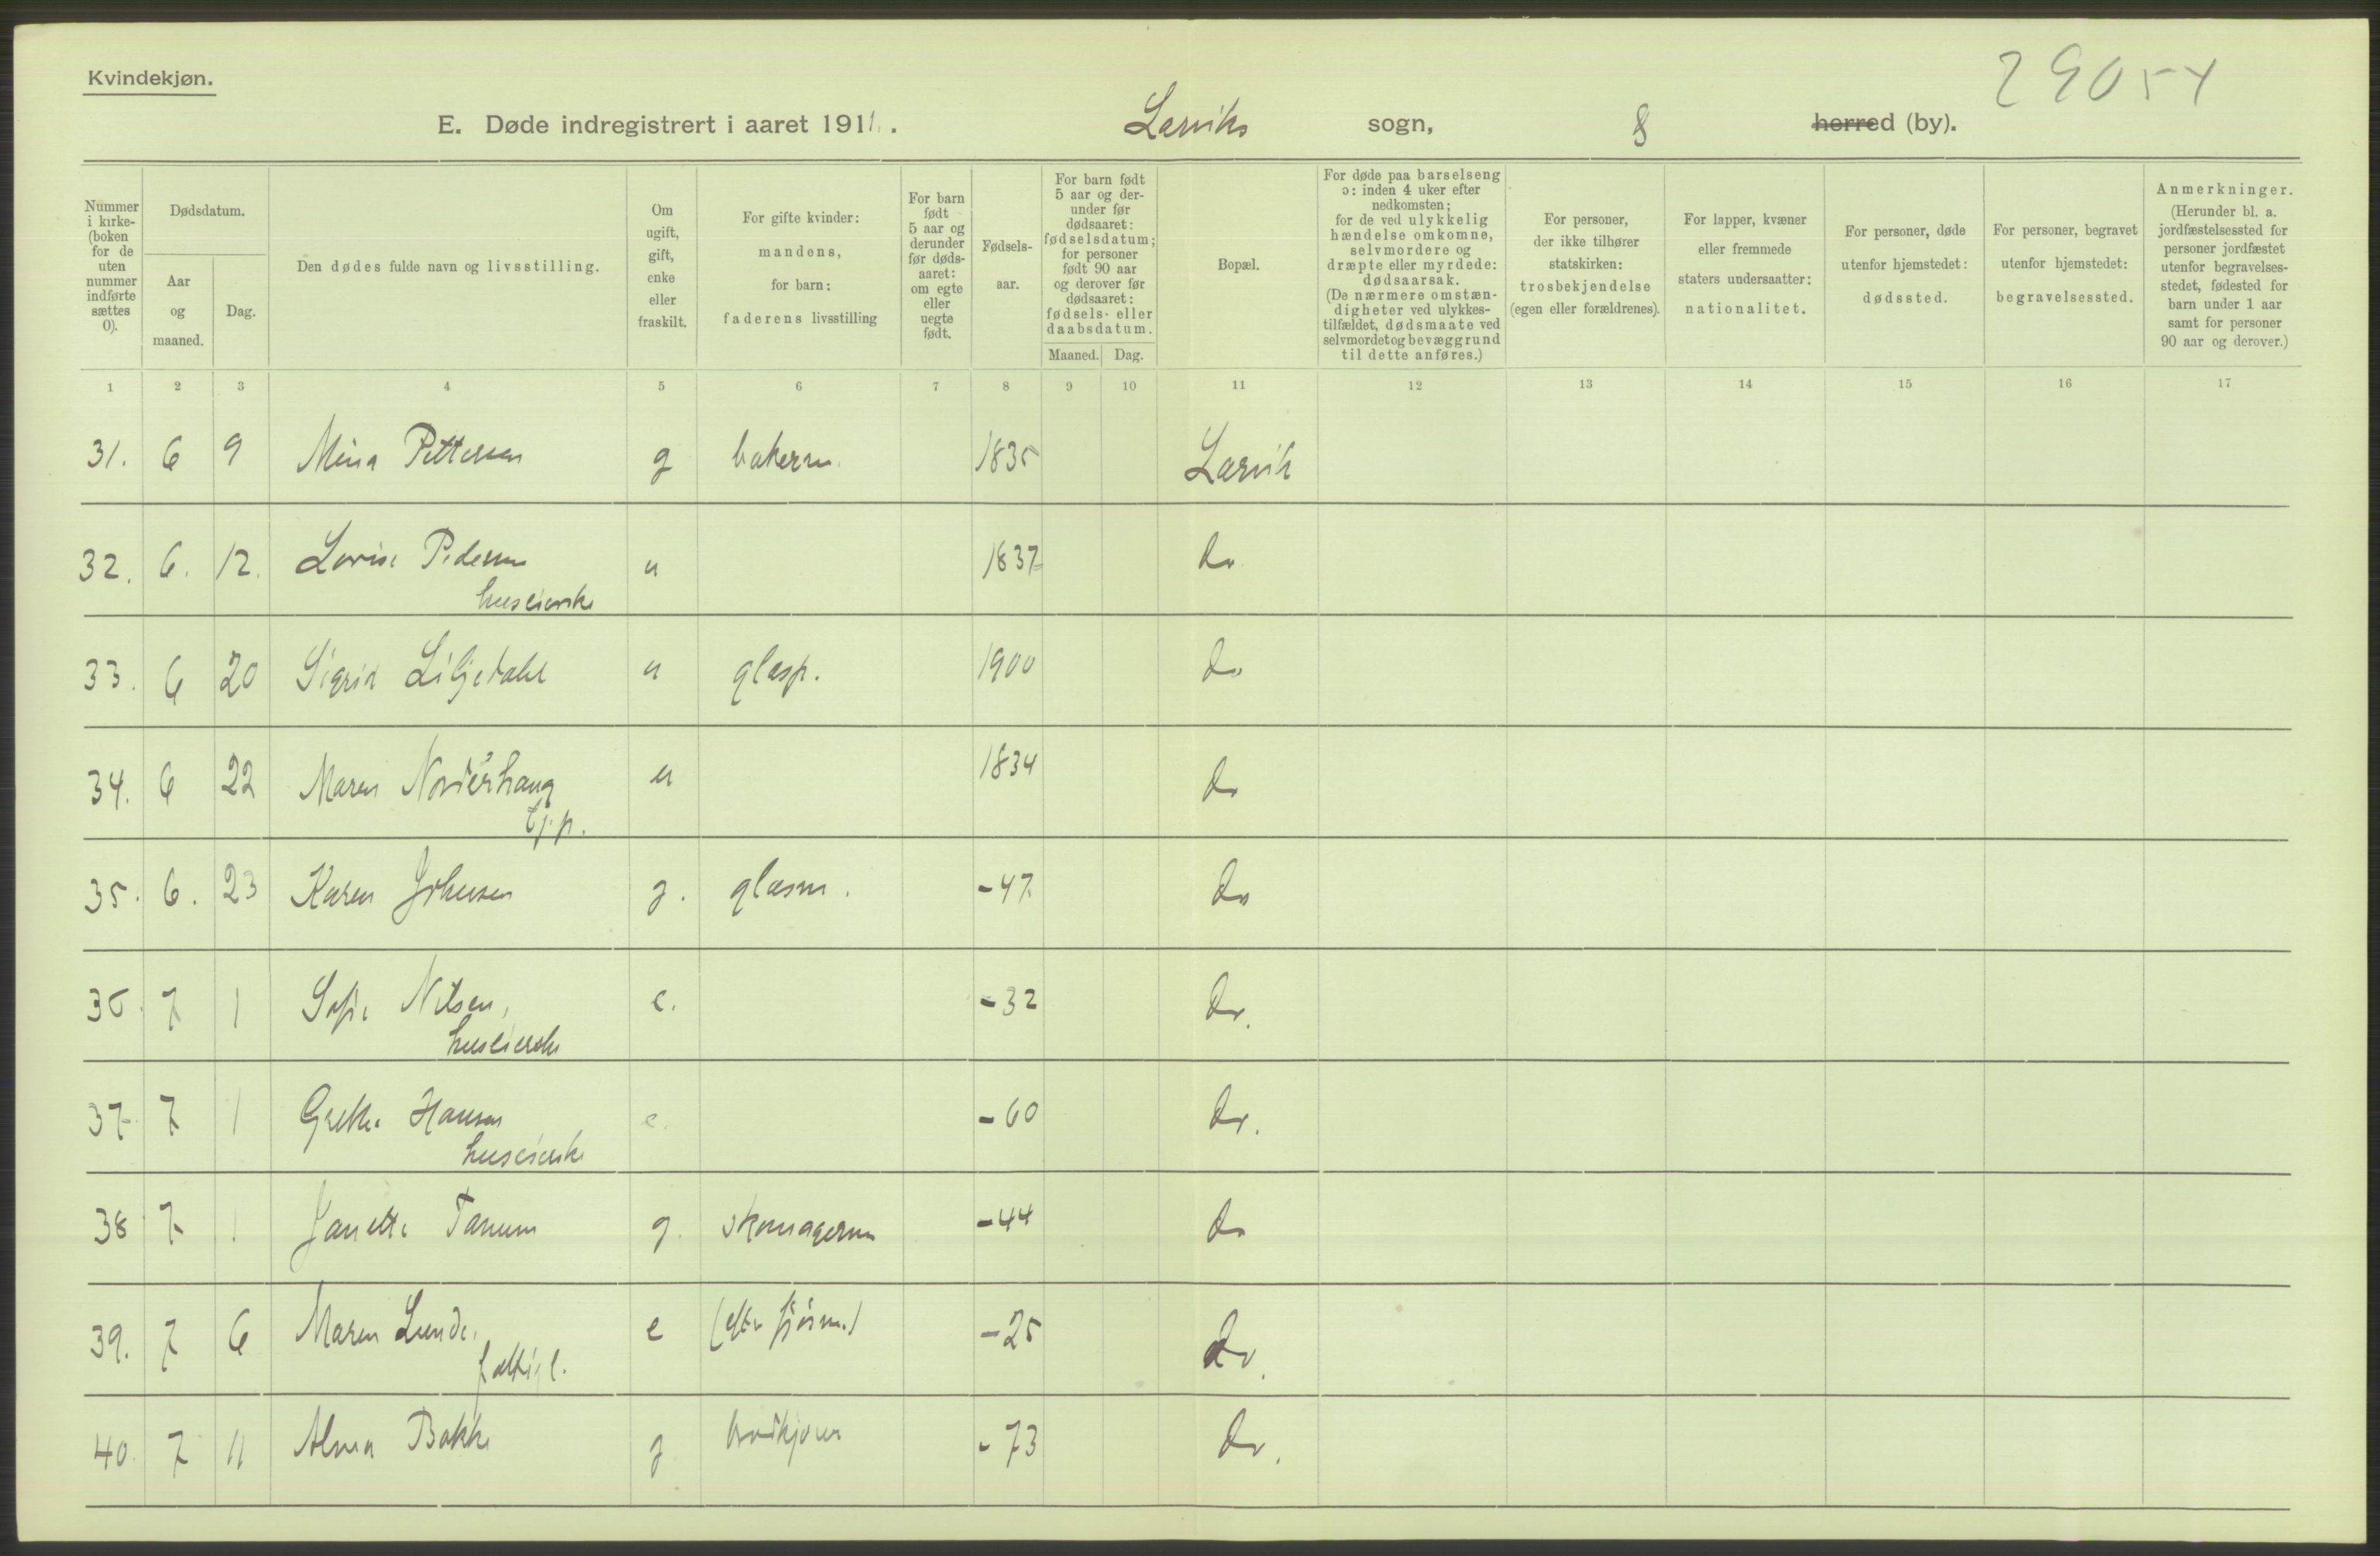 Kvindekjøn.
29054
E. Døde indregistrert i aaret 1911. Larviks sogn, 8 herred (by).
Nummer i kirke-(boken for de uten nummer indførte sættes 0).
Dødsdatum.
Aar og maaned.
Dag.
Den dødes fulde navn og livsstilling.
Om ugift, gift, enke eller fraskilt.
For gifte kvinder: mandens, for barn: faderens livsstilling
For barn født 5 aar og derunder før døds-aaret: om egte eller uegte født.
Fødsels-aar.
For barn født 5 aar og der-under før dødsaaret: fødselsdatum; for personer født 90 aar og derover før dødsaaret: fødsels- eller daabsdatum.
Maaned. Dag.
Bopæl.
For døde paa barselseng ɔ: inden 4 uker efter nedkomsten; for de ved ulykkelig hændelse omkomne, selvmordere og dræpte eller myrdede: dødsaarsak. (De nærmere omstæn-digheter ved ulykkes-tilfældet, dødsmaate ved selvmord et og bevæggrund til dette anføres.)
For personer, der ikke tilhører statskirken: trosbekjendelse (egen eller forældrenes).
For lapper, kvæner eller fremmede staters undersaatter: nationalitet.
For personer, døde utenfor hjemstedet: dødssted.
For personer, begravet utenfor hjemstedet: begravelsessted.
Anmerkninger. (Herunder bl. a. jordfæstelsessted for personer jordfæstet utenfor begravelses-stedet, fødested for barn under 1 aar samt for personer 90 aar og derover.)
1 2 3 4 5 6 7 8 9 10 11 12 13 14 15 16 17
31. 6 9 Mina Pettersen g bakerm. 1835 Larvik
32. 6. 12. Lovise Pedersen u 1837 do
huseierske
33. 6 20 Sigrid Liljedahl u glasp. 1900 do
34. 6 22 Maren Norderhaug u 1834 do
tj.p.
35. 6. 23 Karen Johnsen g. glasm. -47. do
36. 7 1 Sofie Nilsen, e. -32 do.
huseierske
37. 7 1 Grethe Hansen e. -60 do.
huseierske
38 7 1 Janette Tanum g. skomagerm -44 do
39. 7 6 Maren Lunde, e (efter sjøm.) -25 do.
fattigl.
40. 7 11 Alma Bakke g brødkjører -73 do.